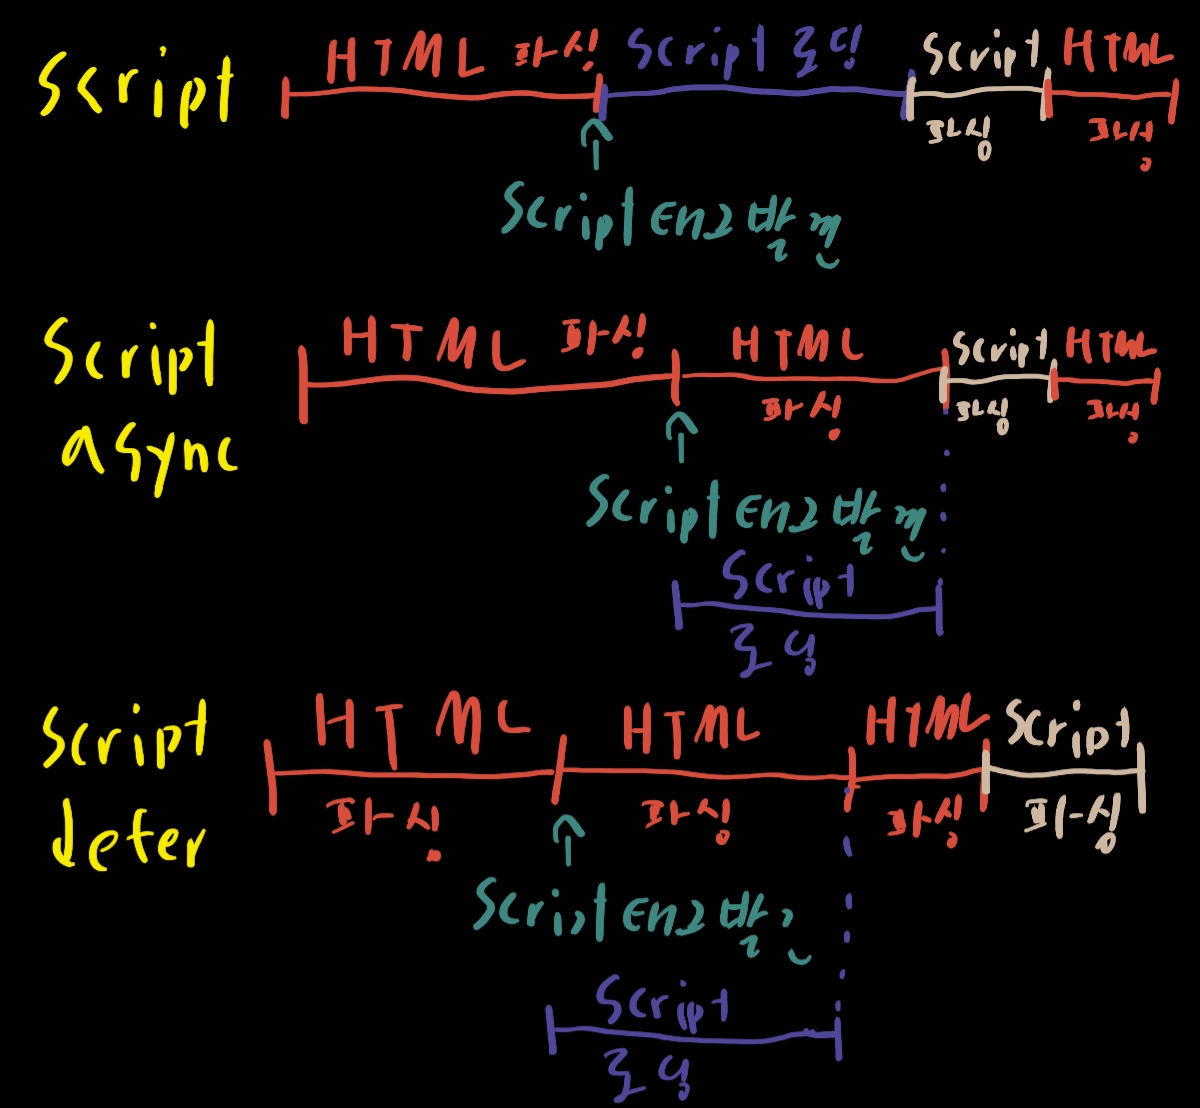 Script
HTML 파싱 Script 로딩 Script 파싱 HTML 파싱
Script 태그 발견
Script async
HTML 파싱 HTML 파싱 Script 파싱 HTML 파싱
Script 태그 발견
Script 로딩
Script defer
HTML 파싱 HTML 파싱 HTML 파싱 Script 파싱
Script 태그 발견
Script 로딩